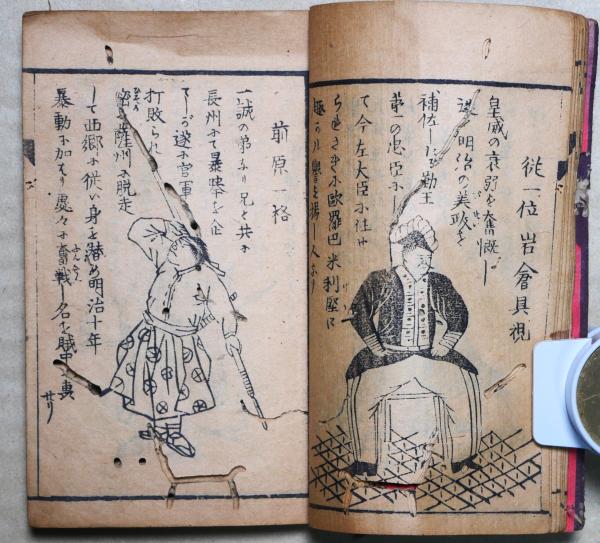 従一位 岩倉具視
皇威の衰弱を奮慨し
明治の美政を
補佐したる勤王
第一の忠臣にし
て今左大臣に任せ
られさきに欧羅巴米利堅に
前原一格
一誠の弟なり兄と共に
長州にて暴挙を企
てしが遂に官軍
打敗られ
薩州に脱走
して西郷に従い身を潜め明治十年
暴動に加はり處々に奮戦し名を賊中に